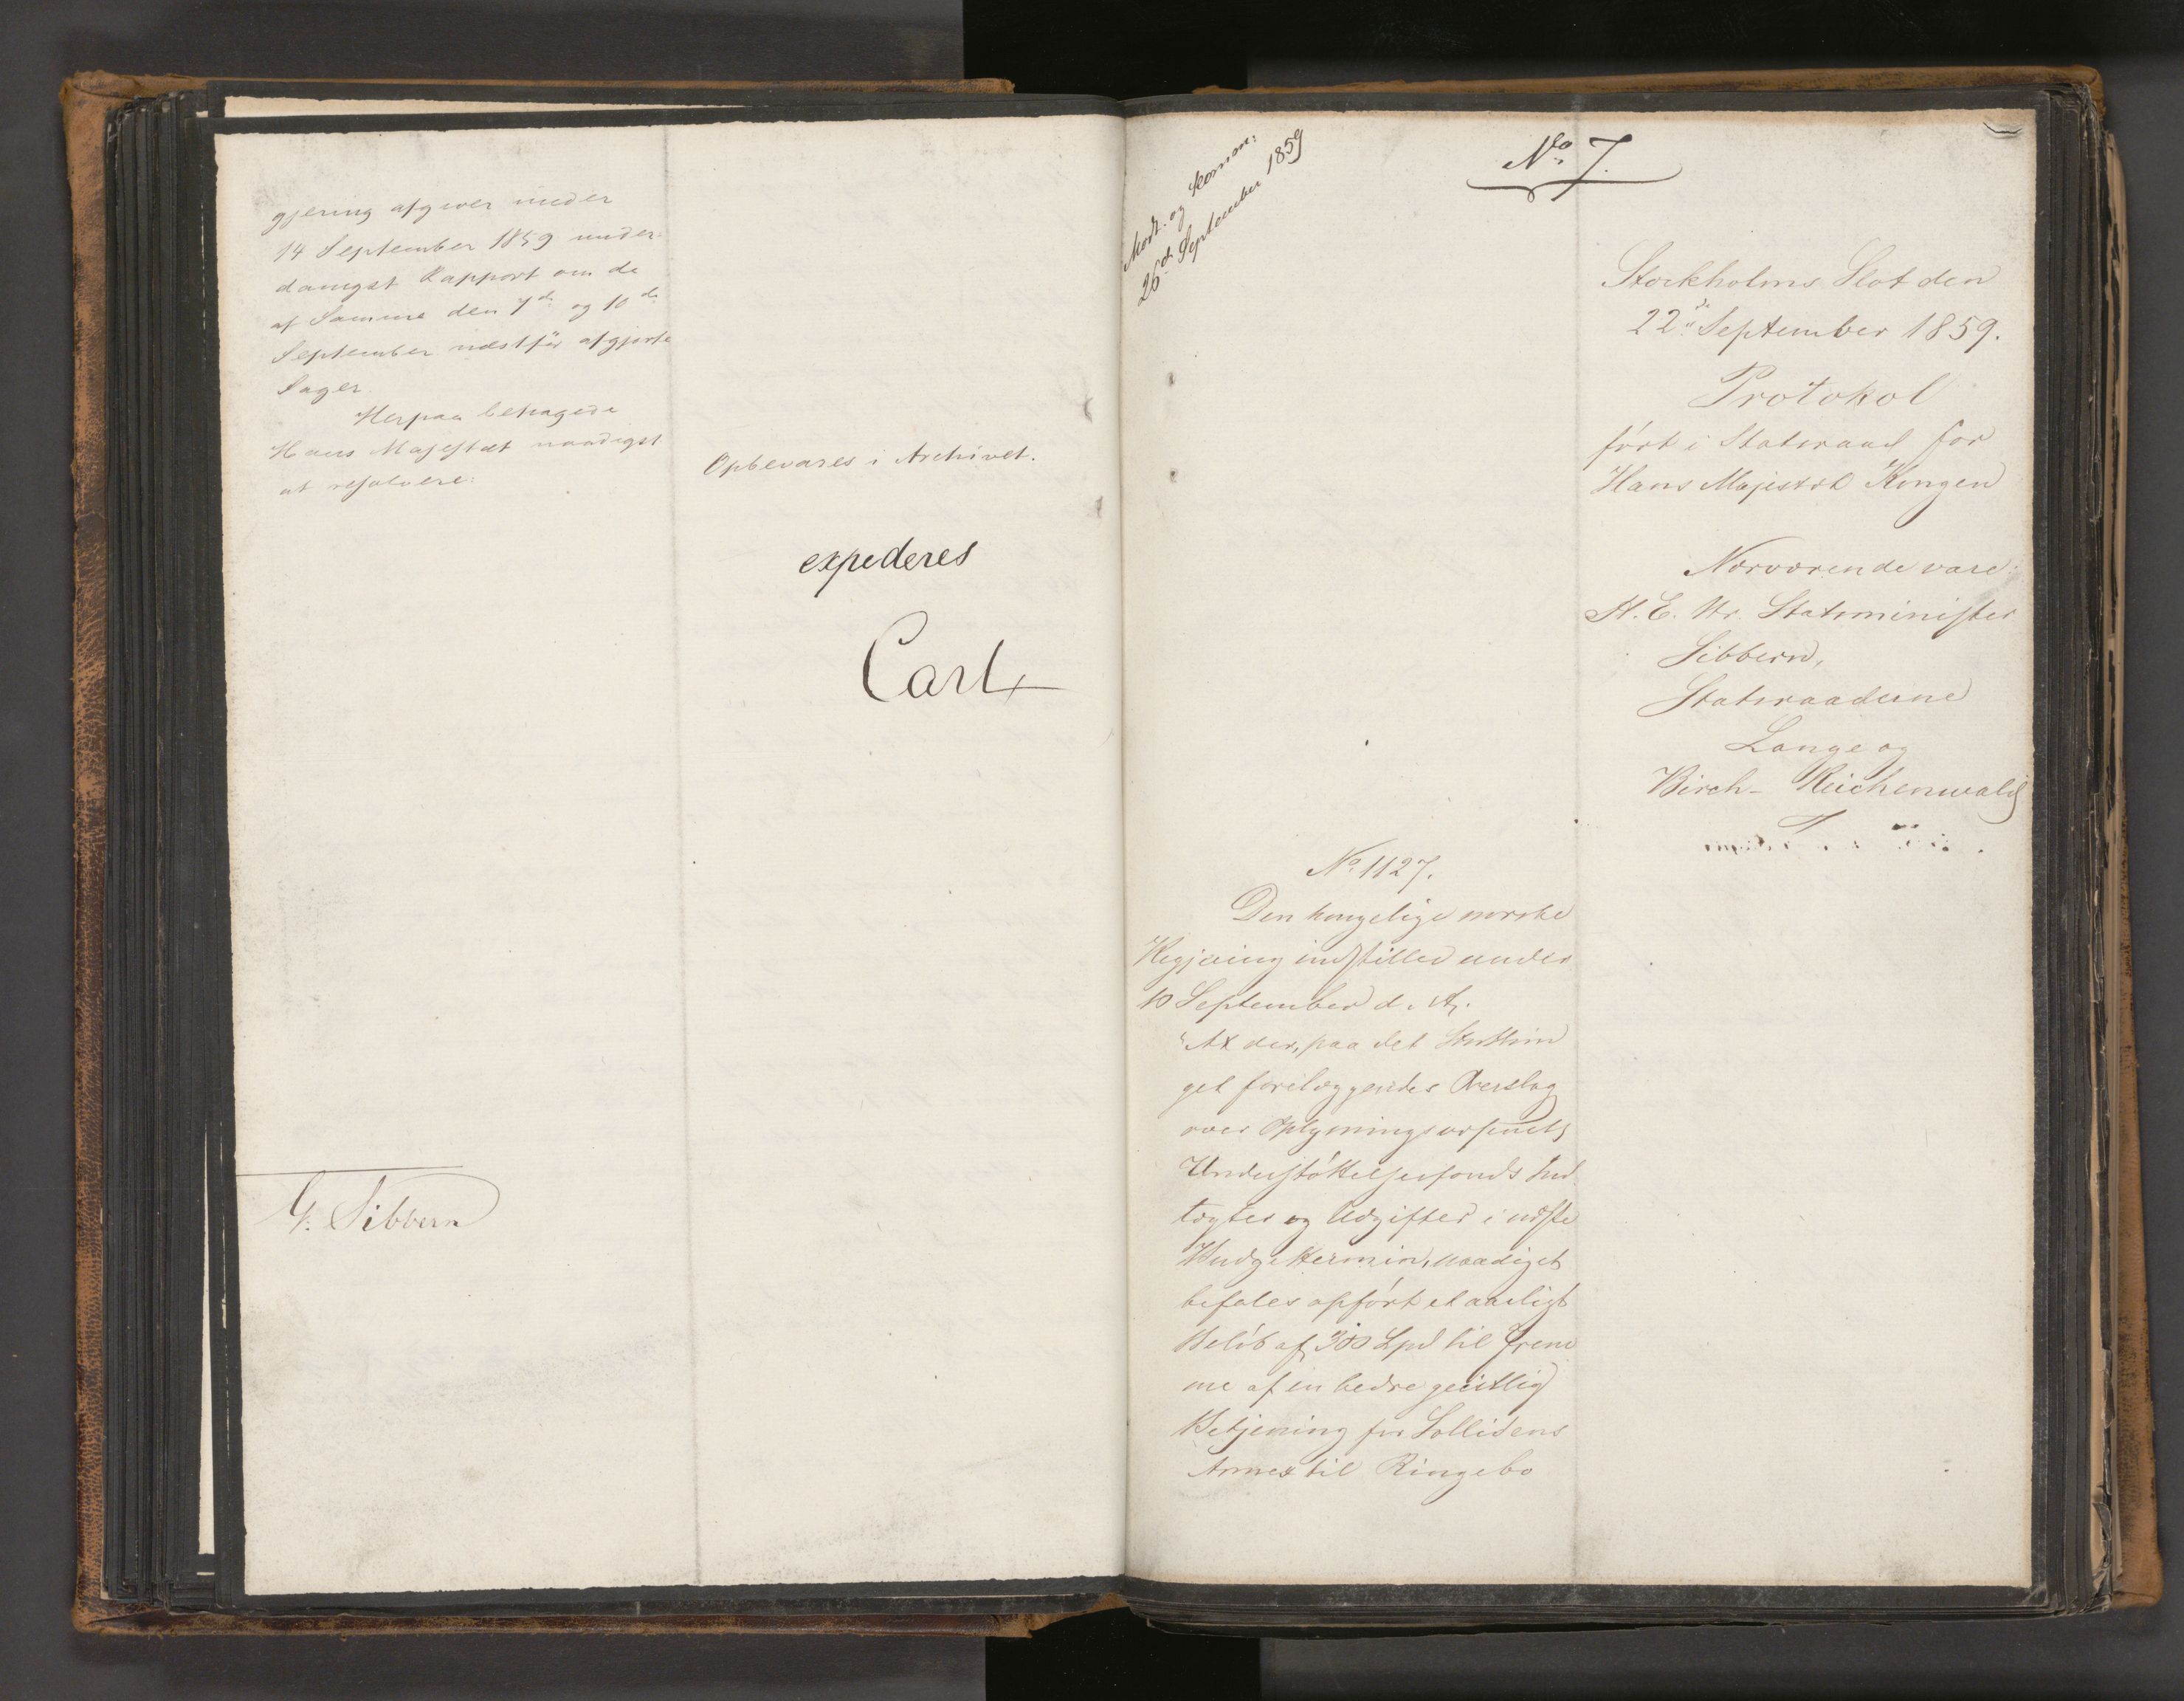 gjering afgiver under
14 September 1859 under-
danigst Rapport om de
af Samme den 7de og 10de
September næstfør afgjorte
Sager.
Herpaa behagede
Hans Majestæt naadigst
at resolvere:
Opbevares i Archivet.
expederes
Carl
G. Sibbern
Modt. og Komm:
26de September 1859
No 7.
Stockholms Slot den
22de September 1859.
Protokol
ført i Statsraad for
Hans Majestæt Kongen
Nærværende vare:
H. E. Hr. Statsminister
Sibbern,
Statsraaderne
Lange og
Birch-Reichenwald
No 1127.
Den kongelige norske
Regjering indstiller under
10 September d. A.
"At der, paa det Storthin
get forelæggendes Overslag
over Oplysningsvæsenets
Understøttelsesfonds Ind
tægter og Udgifter i næste
Budgettermin, naadigst
befales opført et aarligt
Beløb af 300 Spd til Frem
me af en bedre geistlig
Betjening for Sollidens
Annex til Ringebo